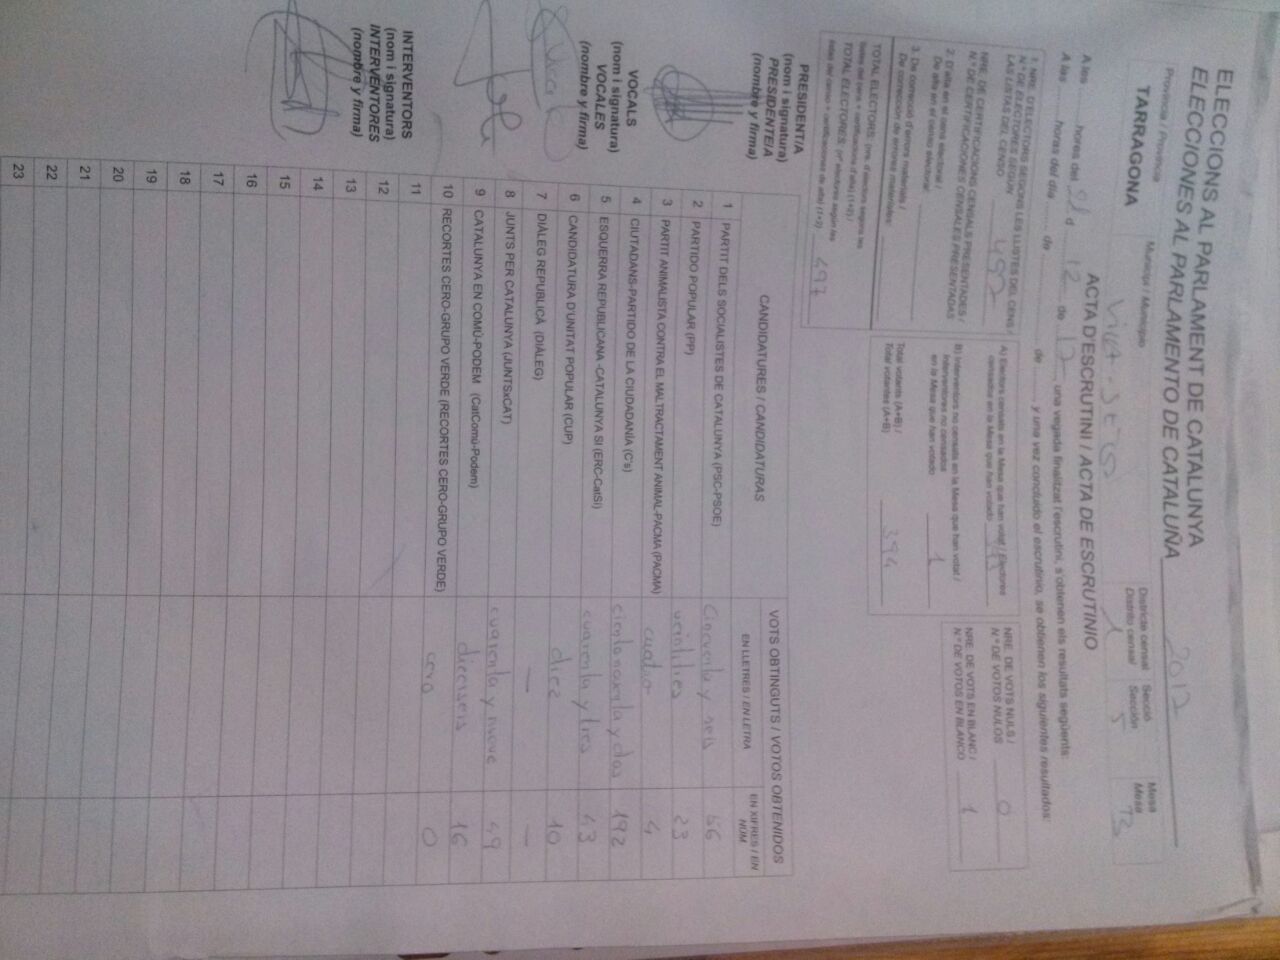 ELECCIONS AL PARLAMENT DE CATALUNYA
ELECCIONES AL PARLAMENTO DE CATALUÑA 2017
Província / Provincia
TARRAGONA
Municipi / Municipio
Vila-Seca
Districte censal
Distrito censal
1
Secció
Sección
5
Mesa
Mesa
ACTA D'ESCRUTINI / ACTA DE ESCRUTINIO
A les hores del 21 d 12 de 17, una vegada finalitzat l'escrutini, s'obtenen els resultats següents:
A las horas del día de de y una vez concluido el escrutinio, se obtienen los siguientes resultados:
1. NRE. D'ELECTORS SEGONS LES LLISTES DEL CENS /
N.º DE ELECTORES SEGÚN
LAS LISTAS DEL CENSO 497
NRE. DE CERTIFICACIONS CENSALS PRESENTADES /
N.º DE CERTIFICACIONES CENSALES PRESENTADAS
2. D'alta en el cens electoral /
De alta en el censo electoral:
3. De correcció d'errors materials /
De corrección de errores materiales:
TOTAL ELECTORS: (nre. d'electors segons les
llistes del cens + certificacions d'alta) (1+2) /
TOTAL ELECTORES: (nº electores según las
listas del censo + certificaciones de alta) (1+2) 497
A) Electors censats en la Mesa que han votat / Electores
censados en la Mesa que han votado
B) Interventors no censats en la Mesa que han votat /
Interventores no censados
en la Mesa que han votado 1
Total votants (A+B) /
Total votantes (A+B) 394
NRE. DE VOTS NULS /
N.º DE VOTOS NULOS 0
NRE. DE VOTS EN BLANC /
N.º DE VOTOS EN BLANCO 1
PRESIDENT/A
(nom i signatura)
PRESIDENTE/A
(nombre y firma)
VOCALS
(nom i signatura)
VOCALES
(nombre y firma)
INTERVENTORS
(nom i signatura)
INTERVENTORES
(nombre y firma)
CANDIDATURES / CANDIDATURAS
VOTS OBTINGUTS / VOTOS OBTENIDOS
EN LLETRES / EN LETRA
EN XIFRES / EN NÚM.
1 PARTIT DELS SOCIALISTES DE CATALUNYA (PSC-PSOE) Cincuenta y seis 56
2 PARTIDO POPULAR (PP) veintitres 23
3 PARTIT ANIMALISTA CONTRA EL MALTRACTAMENT ANIMAL-PACMA (PACMA) cuatro 4
4 CIUTADANS-PARTIDO DE LA CIUDADANÍA (C's) ciento noventa y dos 192
5 ESQUERRA REPUBLICANA -CATALUNYA SÍ (ERC-CatSí) cuarenta y tres 43
6 CANDIDATURA D'UNITAT POPULAR (CUP) diez 10
7 DIÀLEG REPUBLICÀ (DIÀLEG) — —
8 JUNTS PER CATALUNYA (JUNTSxCAT) cuarenta y nueve 49
9 CATALUNYA EN COMÚ-PODEM (CatComú-Podem) dieciseis 16
10 RECORTES CERO-GRUPO VERDE (RECORTES CERO-GRUPO VERDE) cero 0
11
12
13
14
15
16
17
18
19
20
21
22
23